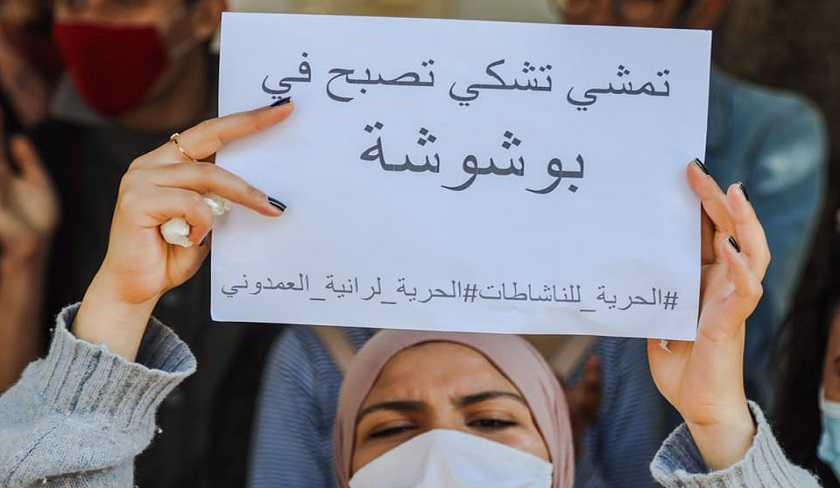 تمشي تشكي تصبح في
بوشوشة
#الحرية_للناشطات#الحرية_لرانية_العمدوني